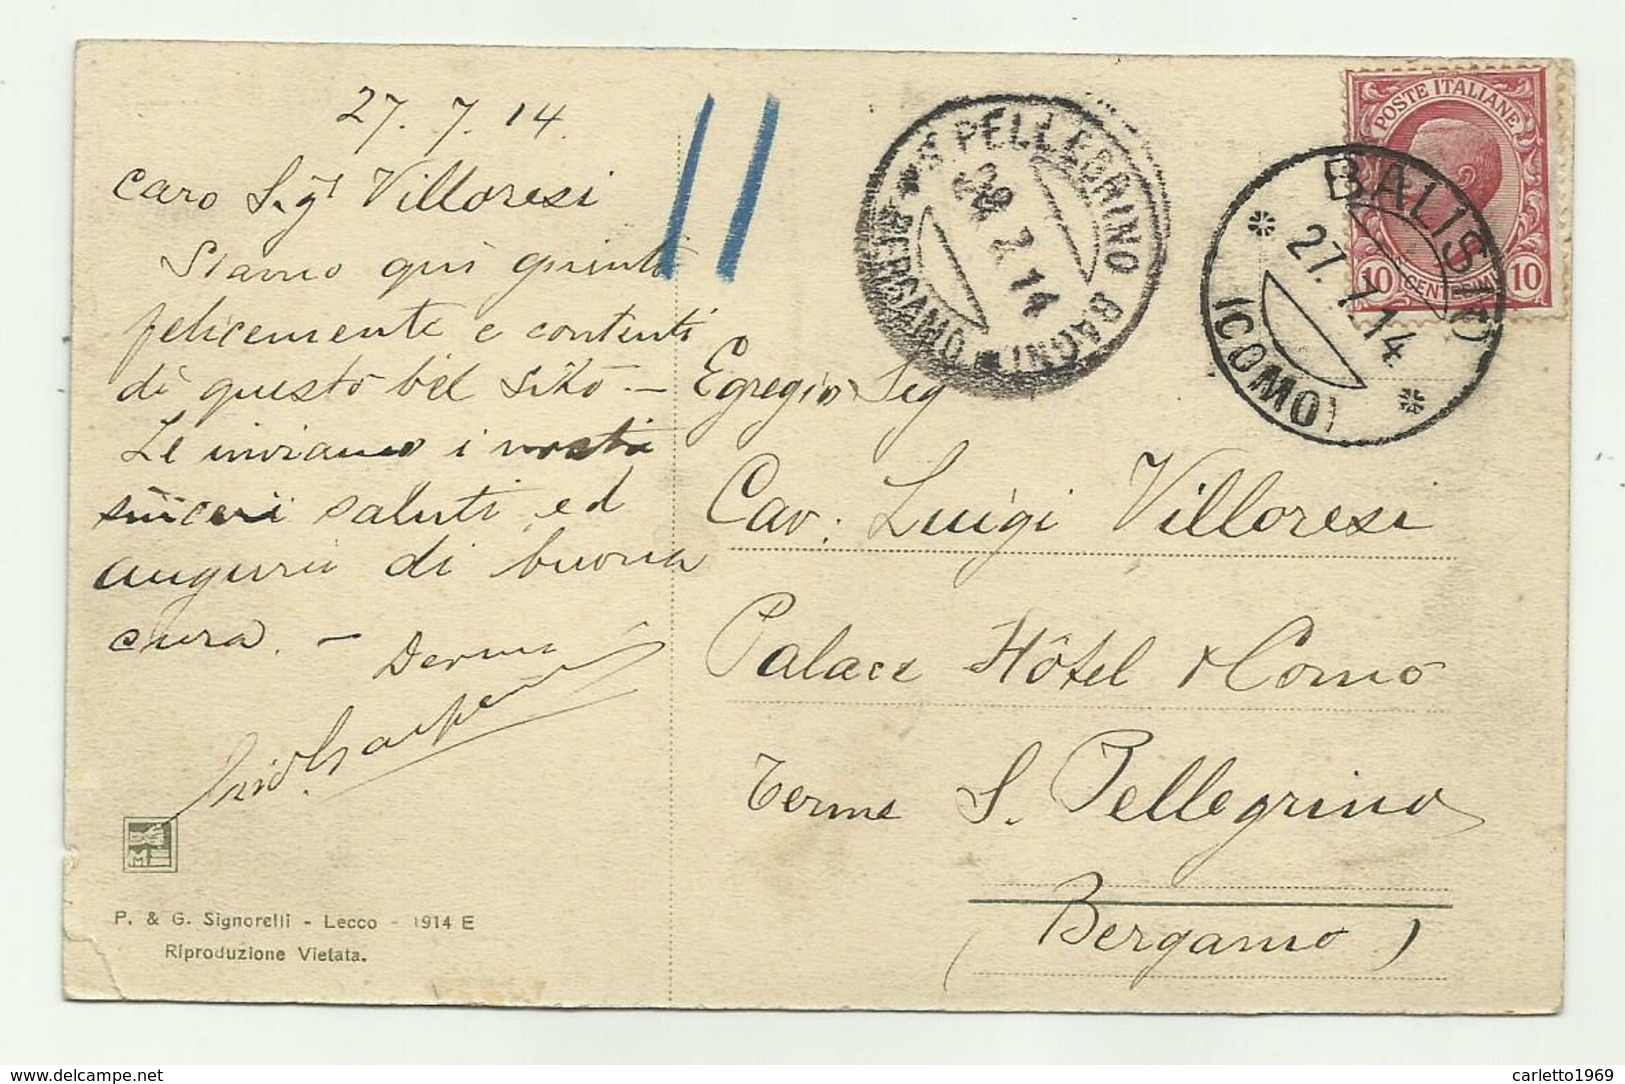 27. 7. 14.
Caro Sigr Villoresi
Siamo qui giunti
felicemente e contenti
di questo bel sito –
Le inviamo i nostri
sinceri saluti ed
auguri di buona
cura. –
P. & G. Signorelli - Lecco - 1914 E
Riproduzione Vietata.
S. PELLEGRINO BAGNI
28. 7. 14
(BERGAMO)
POSTE ITALIANE
10 CENTESIMI 10
BALISIO
27. 7. 14
(COMO)
Egregio Sig
Cav: Luigi Villoresi
Palace Hôtel Como
Terme S. Pellegrino
(Bergamo)
carletto1969
delcampe.net